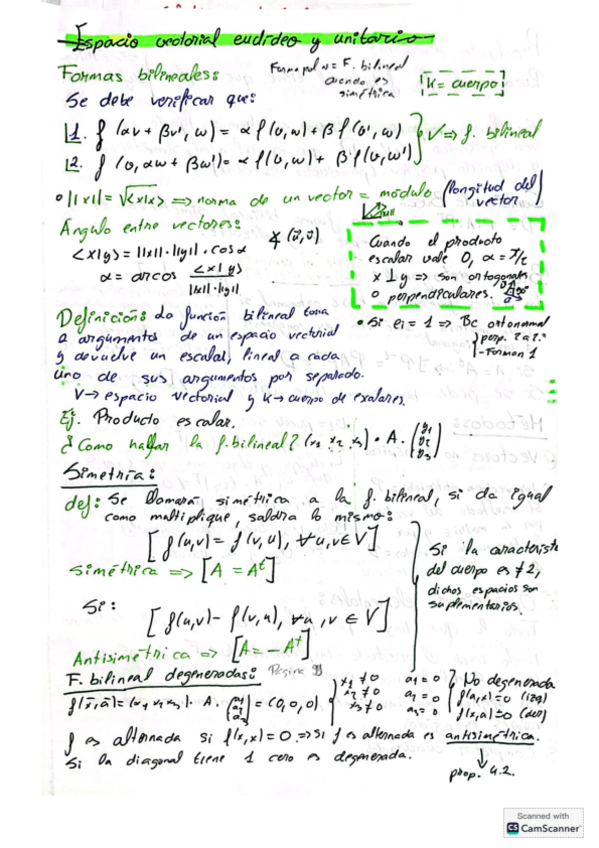 Espacio vectorial euclídeo y unitario
Formas bilineales:
Forma pol = F. bilineal
cuando es
simétrica
K = cuerpo
Se debe verificar que:
1. f (αv + βv', w) = α f(v,w) + β f(v',w)
2. f (v, αw + βw') = α f(v,w) + β f(v,w')
V ⇒ f. bilineal
• ||x|| = √<x|x> ⇒ norma de un vector = módulo (longitud del
vector)
Ángulo entre vectores:
∡ (u⃗,v⃗)
<x|y> = ||x||·||y||·cos α
α = arcos <x|y> / ||x||·||y||
Cuando el producto
escalar vale 0, α = π/2
x ⊥ y ⇒ son ortogonales
o perpendiculares.
• Si ei = 1 ⇒ Bc ortonormal
perp. 2 a 2.
- Forman 1
Definición: La función bilineal toma
2 argumentos de un espacio vectorial
y devuelve un escalar, lineal a cada
uno de sus argumentos por separado.
V → espacio vectorial y K → cuerpo de exalares.
Ej. Producto escalar.
¿Como hallar la f. bilineal? (x1 x2 x3) • A · (y1 y2 y3)
Simetría:
def: Se llamará simétrica a la f. bilineal, si da igual
como multiplique, saldría lo mismo:
[f(u,v) = f(v,u), ∀u,v∈V]
Simétrica ⇒ [A = Aᵗ]
Si la característi
del cuerpo es ≠ 2,
dichos espacios son
suplementarios.
Si:
[f(u,v) - f(v,u), ∀u,v ∈ V]
Antisimétrica ⇒ [A = -Aᵗ]
F. bilineal degeneradas: Página
f(x̄,ā) = (x1 x2 x3) · A · (a1 a2 a3) = (0,0,0)
x1 ≠ 0
x2 ≠ 0
x3 ≠ 0
a1 = 0
a2 = 0
a3 = 0
No degenerada
f(a,x) = 0 (izq)
f(x,a) = 0 (der)
f es alternada si f(x,x) = 0 ⇒ si f es alternada es antisimétrica.
Si la diagonal tiene 1 cero es degenerada.
prop. 4.2.
Scanned with
CS CamScanner